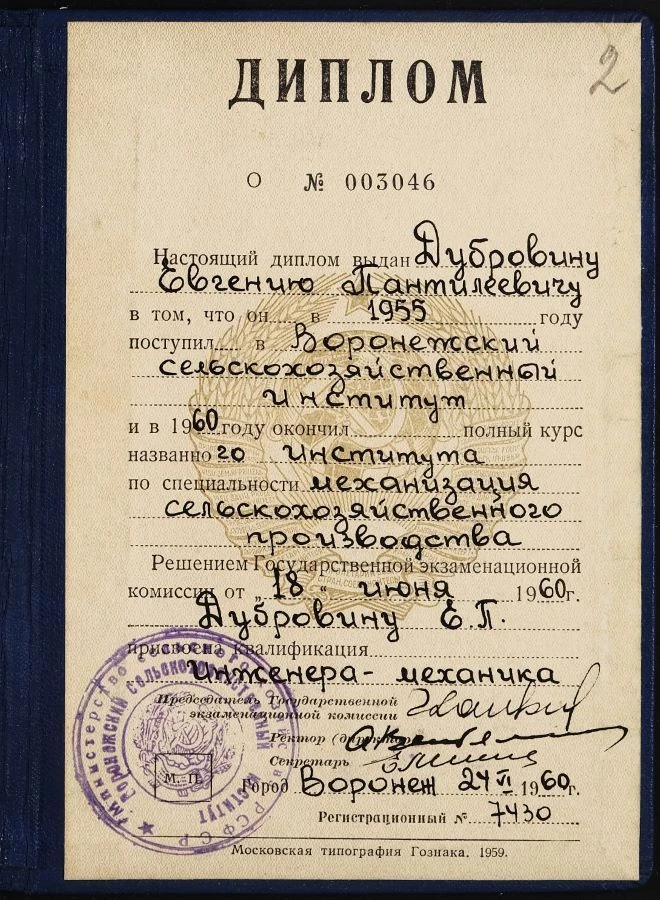 2
ДИПЛОМ
О № 003046
Настоящий диплом выдан Дубровину
Евгению Пантилеевичу
в том, что он в 1955 году
поступил в Воронежский
сельскохозяйственный
институт
и в 1960 году окончил полный курс
названного института
по специальности механизация
сельскохозяйственного
производства
Решением Государственной экзаменационной
комиссии от „18“ июня 1960 г.
Дубровину Е.П.
присвоена квалификация
инженера-механика
Председатель Государственной
экзаменационной комиссии
Ректор (директор)
Секретарь
М. П.
Город Воронеж 24 VI 1960 г.
Регистрационный № 7430
Московская типография Гознака. 1959.
Министерство сельского РСФСР
Воронежский сельскохозяйственный институт